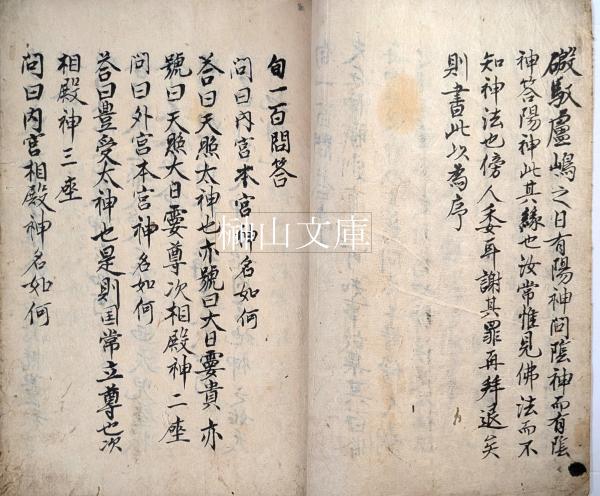 磤馭盧嶋之日有陽神問陰神而有陰
神答陽神此其縁也汝常惟見佛法而不
知神法也傍人委耳謝其罪再拜退矣
則書此以為序
旬一百問答
問曰内宮本宮神名如何
荅曰天照太神也亦號曰大日孁貴亦
號曰天照大日孁尊次相殿神二座
問曰外宮本宮神名如何
荅曰豊受太神也是則国常立尊也次
相殿神三座
問曰内宮相殿神名如何
榊山文庫